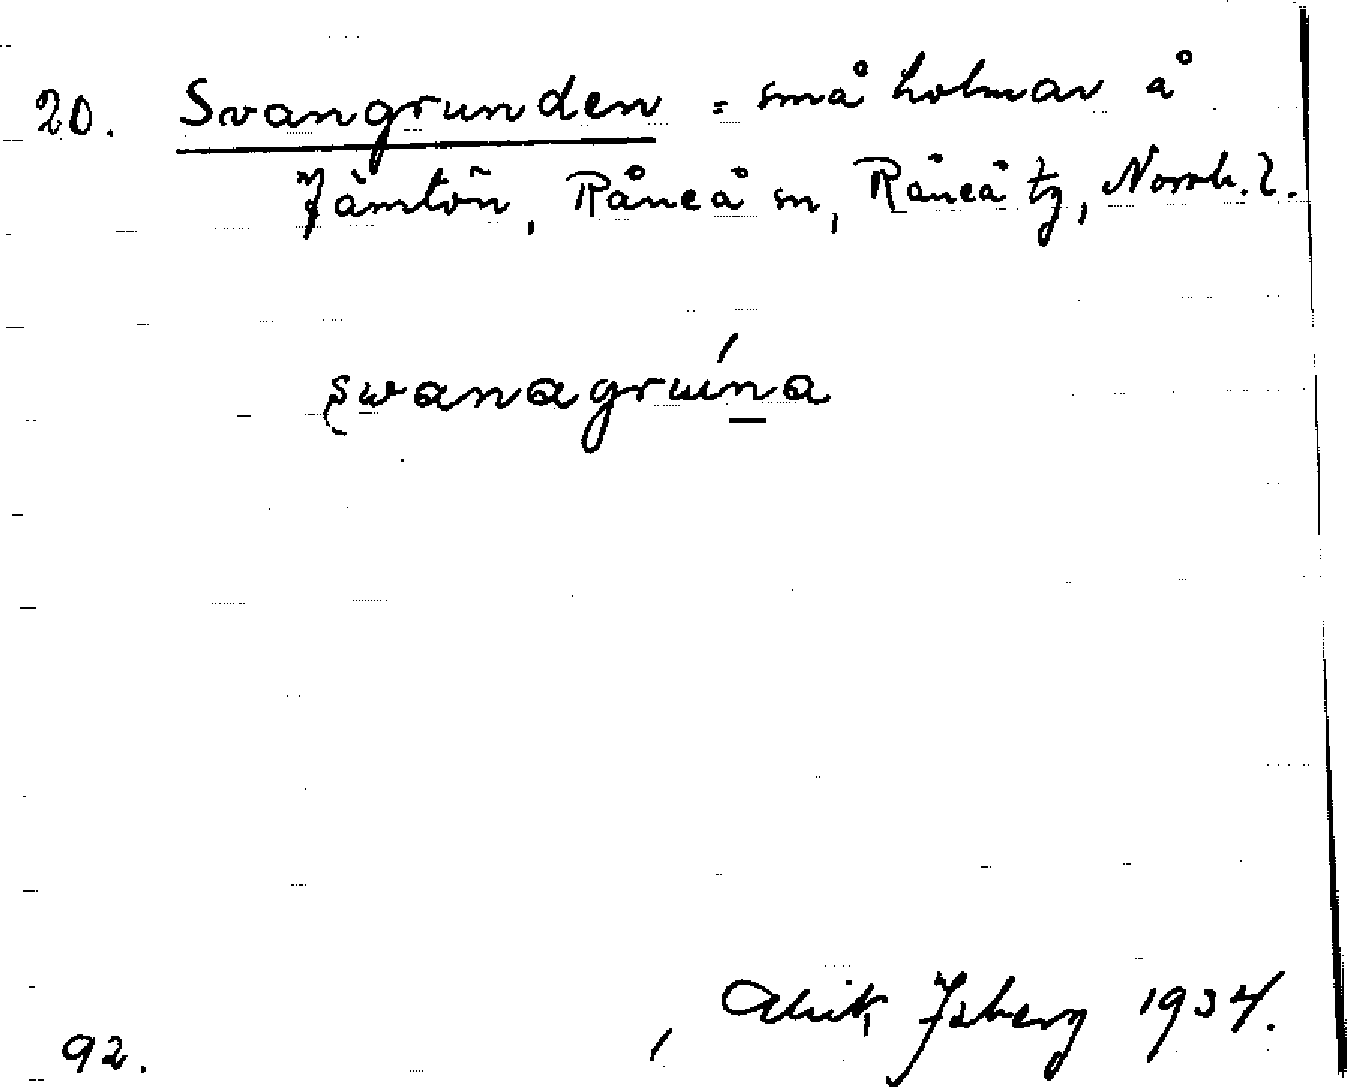 20. Svangrunden = små holmar å
Jämtön, Råneå sn, Råneå tg, Norrb. l.
swanagruńa
Alrik Isberg 1934.
92.